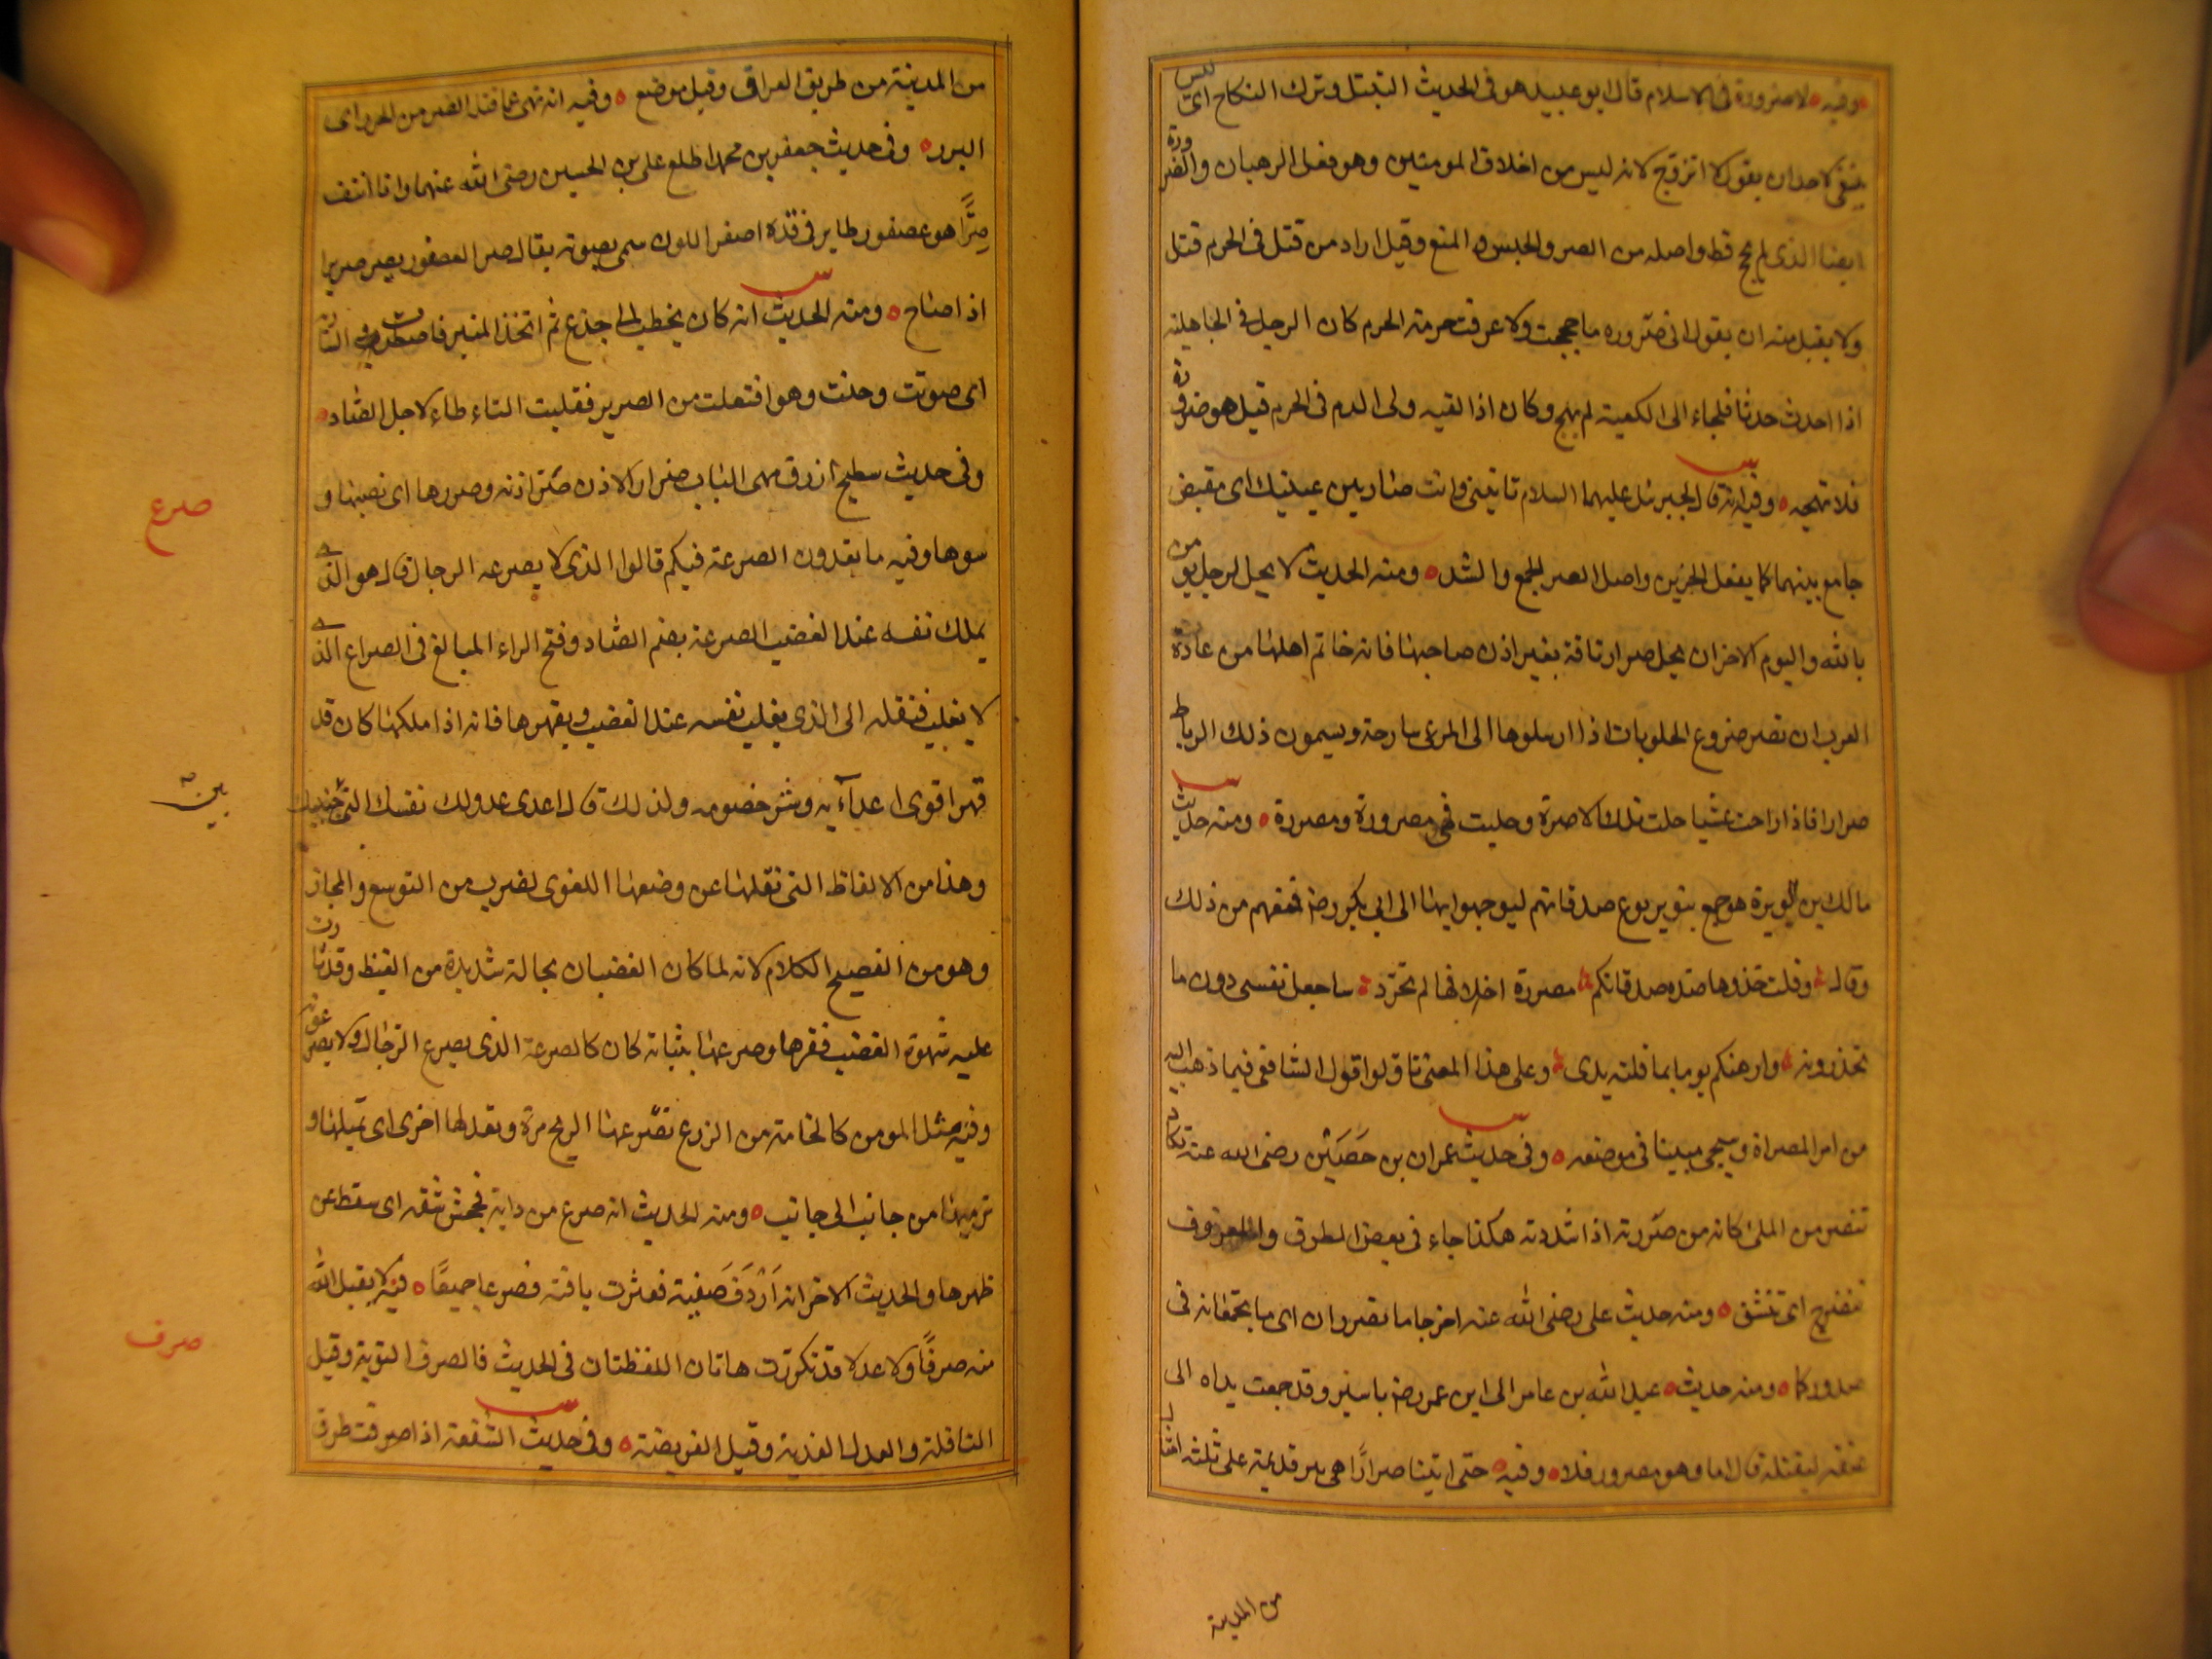 وفيه لا صرورة فى الاسلام قال ابو عبيد هو فى الحديث التبتل وترك النكاح اى ليس
ينبغى لاحد ان يقول لا اتزوج لانه ليس من اخلاق المومنين وهو فعل الرهبان والصرورة
ايضا الذى لم يحج قط واصله من الصر والحبس والمنع وقيل اراد من قتل فى الحرم قتل
ولا يقبل منه ان يقول انى صروره ما حججت ولا عرفت حرمة الحرم كان الرجل فى الجاهلية
اذا احدث حدثا فلجاء الى الكعبة لم يهج وكان اذا لقيه ولى الدم فى الحرم قيل هو صرورة
فلا تهجه وفيه انه قال لجبرئل عليهما السلام تاتينى وانت صار بين عينيك اى مقبض
جامع بينهما كما يفعل الحزين واصل الصر الجمع والشد ومنه الحديث لا يحل لرجل يومن
بالله واليوم الاخر ان يحل صرار ناقة بغير اذن صاحبها فانه خاتم اهلها من عادة
العرب ان تصر ضروع الحلوبات اذا ارسلوها الى المرعى سارحة ويسمون ذلك الرباط
صرارا فاذا راحت عشيا حلت تلك الاصرة وحلبت فهى مصرورة ومصررة ومنه حديث
مالك بن نويرة هو جمع بنو يربوع صدقاتهم ليوجهوا بها الى ابى بكر رضه فمنعهم من ذلك
وقال وقلت خذوها هذه صدقاتكم مصررة اخلافها لم تحرد ساجعل نفسى دون ما
تحذرونه وارهنكم يوما بما قلته يدى وعلى هذا المعنى تاولوا قول الشافعى فيما ذهب اليه
من امر المصراة وسيجى مبينا فى موضعه وفى حديث عمران بن حصين رضى الله عنه تكاد
تنصر من الملئ كانه من صررته اذا شددته هكذا جاء فى بعض الطرق والمعروف
تنضرج اى تنشق ومنه حديث على رضى الله عنه اخرجا ما تصرران اى ما تجمعانه فى
صدوركما ومنه حديث عبد الله بن عامر الى ابن عمر رضه باسير وقد جمعت يداه الى
عنقه ليقتله قال اما وهو مصرور فلا وفيه حتى اتينا صرارا هى بير قديمة على ثلثة اميال
من المدينة
من المدينة من طريق العراق وقيل موضع وفيه انه نهى عما قتل الصر من الجراد اى
البرد وفى حديث جعفر بن محمد اطلع على بن الحسين رضى الله عنهما وانا انتف
صرا هو عصفور طاير فى قده اصفر اللون سمى بصوته يقال صر العصفور يصر صريرا
اذا صاح ومنه الحديث انه كان يخطب الى جذع ثم اتخذ المنبر فاصطرت السارية
اى صوتت وحنت وهو افتعلت من الصرير فقلبت التاء طاء لاجل الصاد
وفى حديث سطيح ازرق مهمى الناب صرار الاذن صر اذنه وصررها اى نصبها و
سوها وفيه ما تعدون الصرعة فيكم قالوا الذى لا يصرعه الرجال قال هو الذى
يملك نفسه عند الغضب الصرعة بضم الصاد وفتح الراء المبالغ فى الصراع الذى
لا يغلب فنقله الى الذى يغلب نفسه عند الغضب ويقهرها فانه اذا ملكها كان قد
قهر اقوى اعدآيه وشر خصومه ولذلك قال اعدى عدو لك نفسك التى بين جنبيك
وهذا من الالفاظ التى نقلها عن وضعها اللغوى لضرب من التوسع والمجاز
وهو من الفصيح الكلام لانه لما كان الغضبان بحالة شديدة من الغيظ وقد ثارت
عليه شهوة الغضب فقهرها وصرعها بثباته كان كالصرعة الذى يصرع الرجال ولا يصرعونه
وفيه مثل المومن كالخامة من الزرع تصرعها الريح مرة وتعدلها اخرى اى تميلها و
ترميها من جانب الى جانب ومنه الحديث انه صرع من دابة فجحش شقه اى سقط عن
ظهرها والحديث الاخر انه اردف صفية فعثرت ناقته فصرعا جميعا فيه لا يقبل الله
منه صرفا ولا عدلا قد تكررت هاتان اللفظتان فى الحديث فالصرف التوبة وقيل
النافلة والعدل الفدية وقيل الفريضة وفى حديث الشفعة اذا صرفت طرق
صرع
بين
صرف